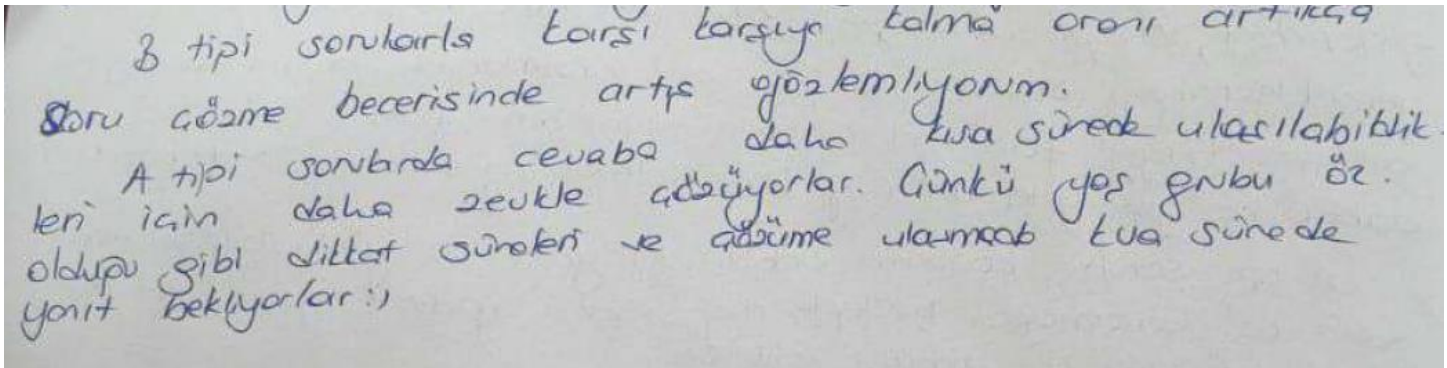 B tipi sorularla karşı karşıya kalma oranı artıkça
Soru çözme becerisinde artış gözlemliyorum.
A tipi sorularda cevaba daha kısa sürede ulaşılabildik-
leri için daha zevkle çözüyorlar. Çünkü yaş grubu öz.
olduğu gibi dikkat süreleri ve çözüme ulaşmada kısa sürede
yanıt bekliyorlar :)